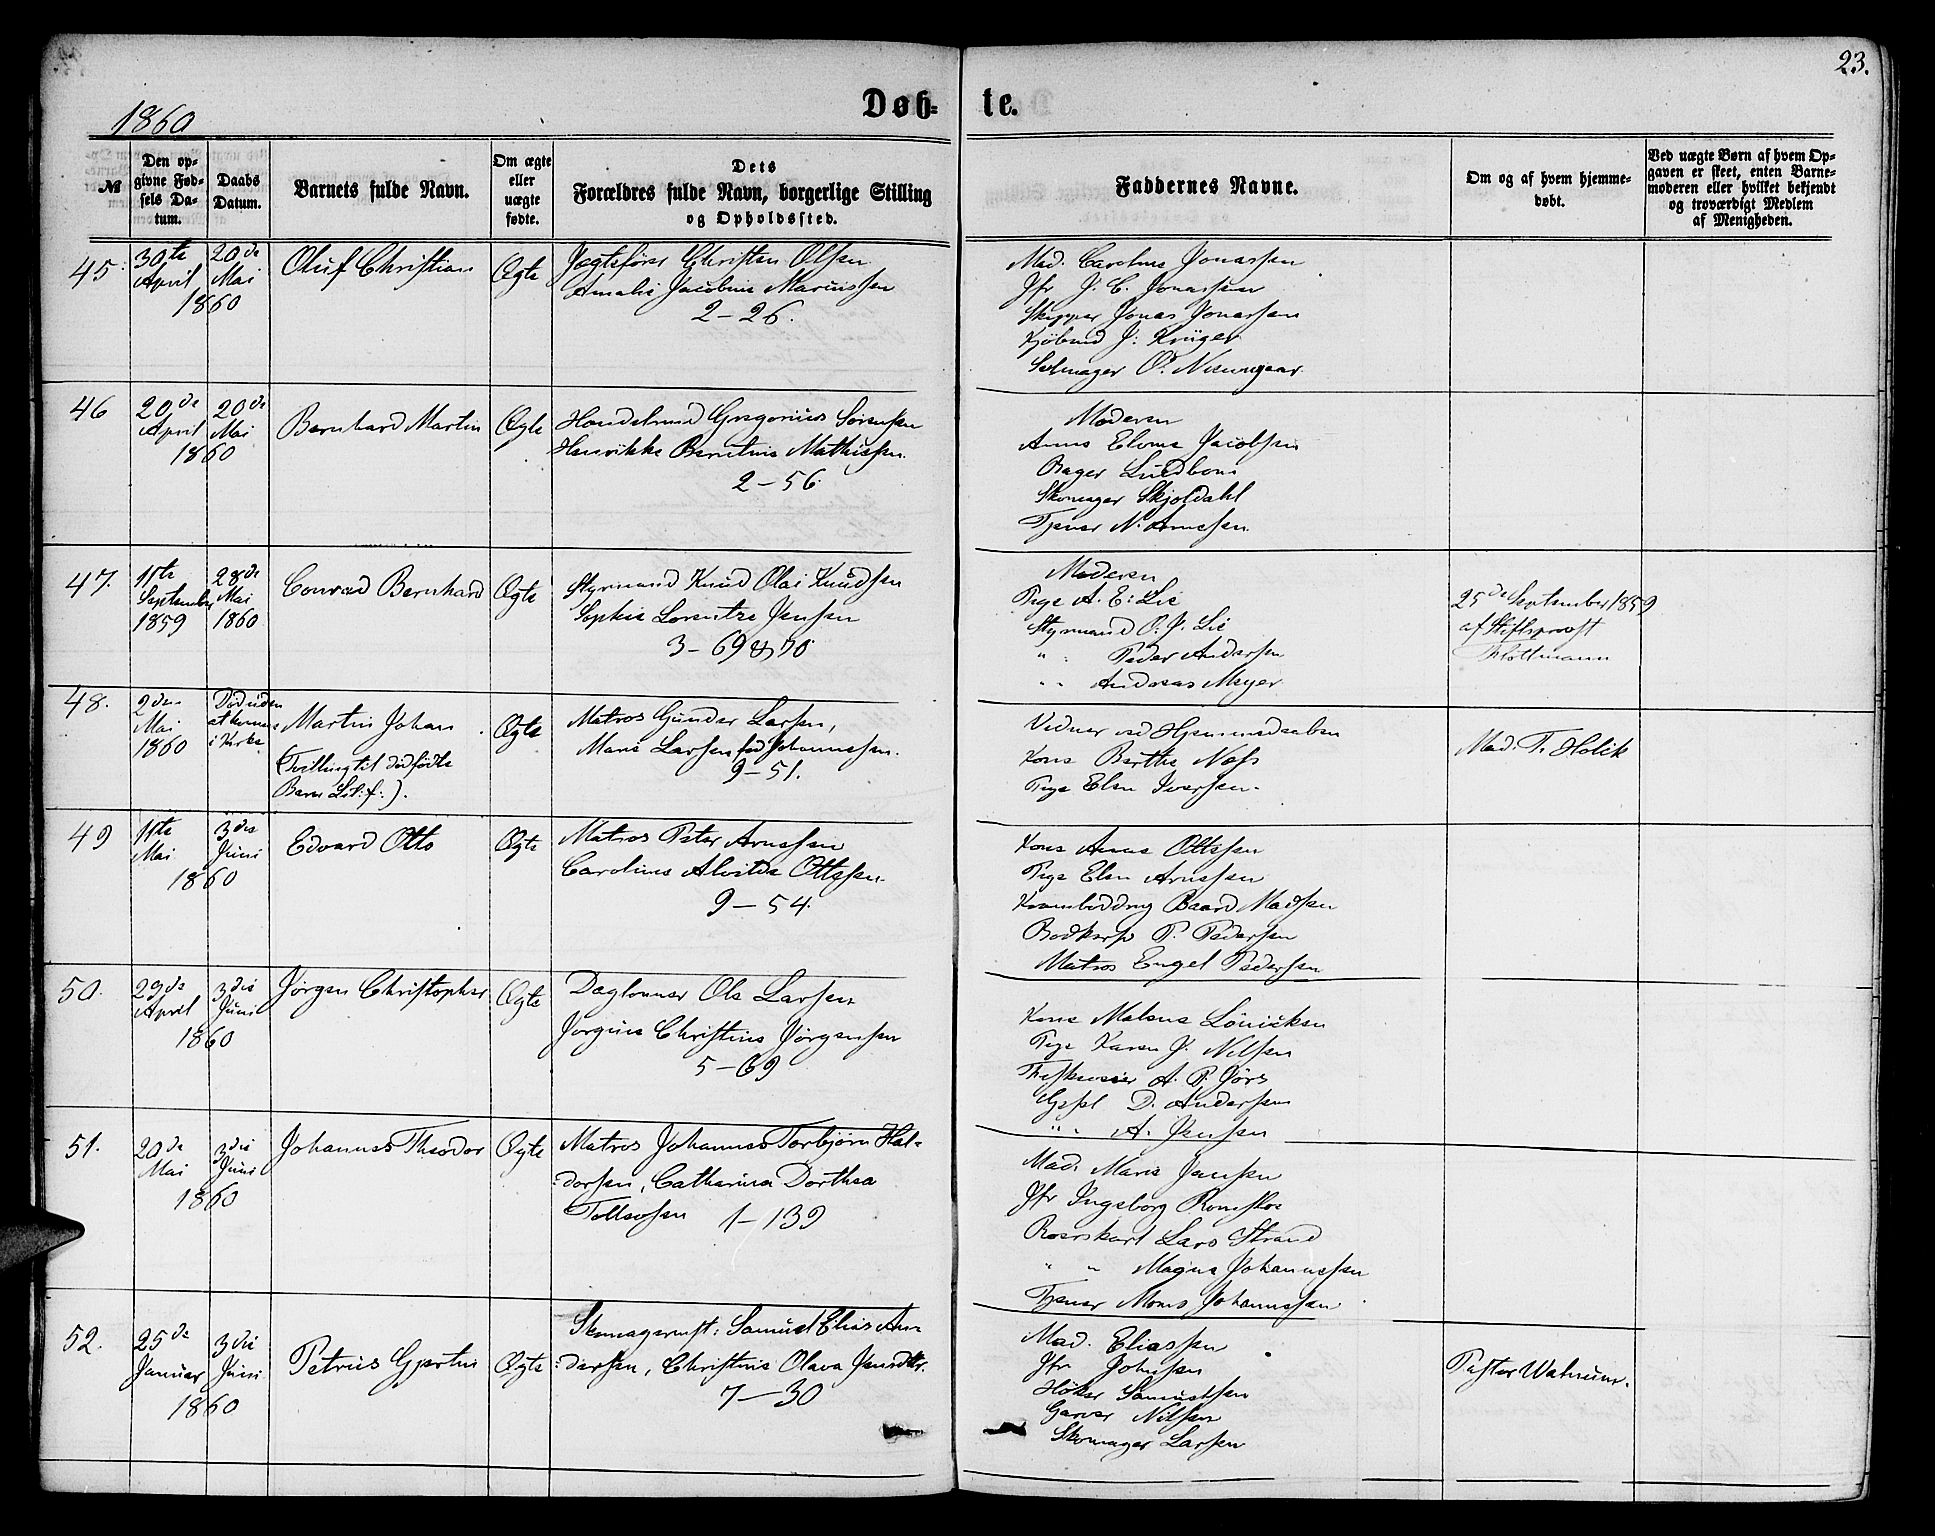 23.
1860
Døb- te.
№
Den op-
givne Fød-
sels Da-
tum.
Daabs
Datum.
Barnets fulde Navn.
Om ægte
eller
uægte
fødte.
Dets
Forældres fulde Navn, borgerlige Stilling
og Opholdssted.
Faddernes Navne.
Om og af hvem hjemme-
døbt.
Ved uægte Børn af hvem Op-
gaven er skeet, enten Barne-
moderen eller hvilket bekjendt
og troværdigt Medlem
af Menigheden.
45.
30te
April
20de
Mai
1860
Oluf Christian
Ægte
Jagtefører Christen Olsen
Amalie Jacobine Mariussen
2-26.
Mad. Caroline Jonassen
Jfr J. C. Jonassen
Skipper Jonas Jonassen
Kjøbmd J. Krüger
O.
46
20de
April
20de
Mai
1860
Bernhard Martin
Ægte
Handelsmd Gregorius Sørensen
Henrikke Berntine Mathissen.
2-56.
Moderen
Anne Jacobsen
Bager Lundbom
Skomager Skjoldahl
Tjener N. Arnesen
47.
11te
September
1859
28de
Mai
1860
Conrad Bernhard
Ægte
Styrmand Knud Olai Knudsen
Sophie Lorentze Jensen
3-69 & 70.
Moderen
Pige A. E. Lie
Styrmand O. J. Lie
" Peder Andersen
" Andreas Meyer
25de September 1859
af Stiftsprovst
48.
2den
Mai
1860
Død uden
at komme
i Kirke
Martin Johan
(Tvilling til dødfødte
Barn Lit: f:).
Ægte
Matros Gunder Larsen,
Marie Larsen fød Johannessen.
9-51.
Vidner ved Hjemmedaaben
Kone Berthe Næss
Pige Elen Iversen.
Mad. T. Holik
49
11te
Mai
3die
Juni
1860
Edvard Otto
Ægte
Matros Peter Arnesen
Caroline Alvilde Ottesen.
9-54.
Kone Anne Ottesen
Pige Elen Arnesen
Baard Madsen
P. Pedersen
Matros Engel Pedersen
50.
29de
April
3die
Juni
1860
Jørgen Christopher
Ægte
Dagleuner Ole Larsen
Jørgine Christine Jørgensen
5-69
Kone Malene
Pige Karen J. Nilsen
A. P. Jørs
D. Andersen
" A. Jensen
51.
20de
Mai
3die
Juni
1860
Johannes Theodor
Ægte
Matros Johannes Torbjørn Hal-
dorsen, Catharina Dorthea
Tollefsen 1-139
Mad. Marie Jansen
Jfr Ingeborg
Lars Strand
" " Magne Johannessen
Tjener Mons Johannessen
52.
25de
Januar
3die
Juni
1860
Petrus Gjertin
Ægte
Skomagermst: Samuel Elias An-
dersen, Christine Olava Jensdtr.
7-30
Mad. Eliassen
Jfr Johnsen
Høker Samuelsen
Garver Nilsen
Skomager Larsen
Pastor Walnum.